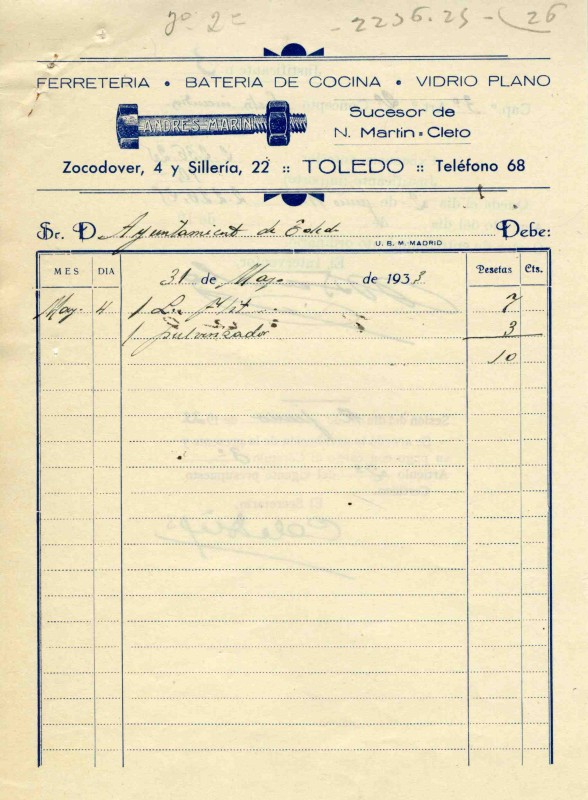 2236.25 - 26
FERRETERIA • BATERIA DE COCINA • VIDRIO PLANO
ANDRES MARIN
Sucesor de
N. Martin-Cleto
Zocodover, 4 y Sillería, 22 :: TOLEDO :: Teléfono 68
Sr. D. Ayuntamient de Toledo Debe:
U. B. M. MADRID
MES DIA 31 de Mayo de 1933 Pesetas Cts.
May. 4 1 7
1 pulverizador 3
10